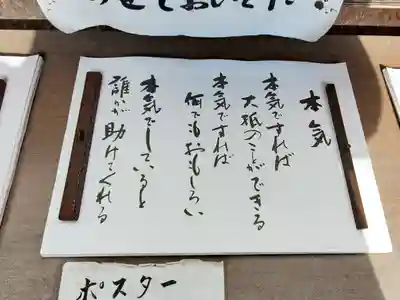 本気
本気ですれば
大抵のことができる
本気ですれば
何でもおもしろい
本気でしていると
誰かが助けてくれる
ポスター